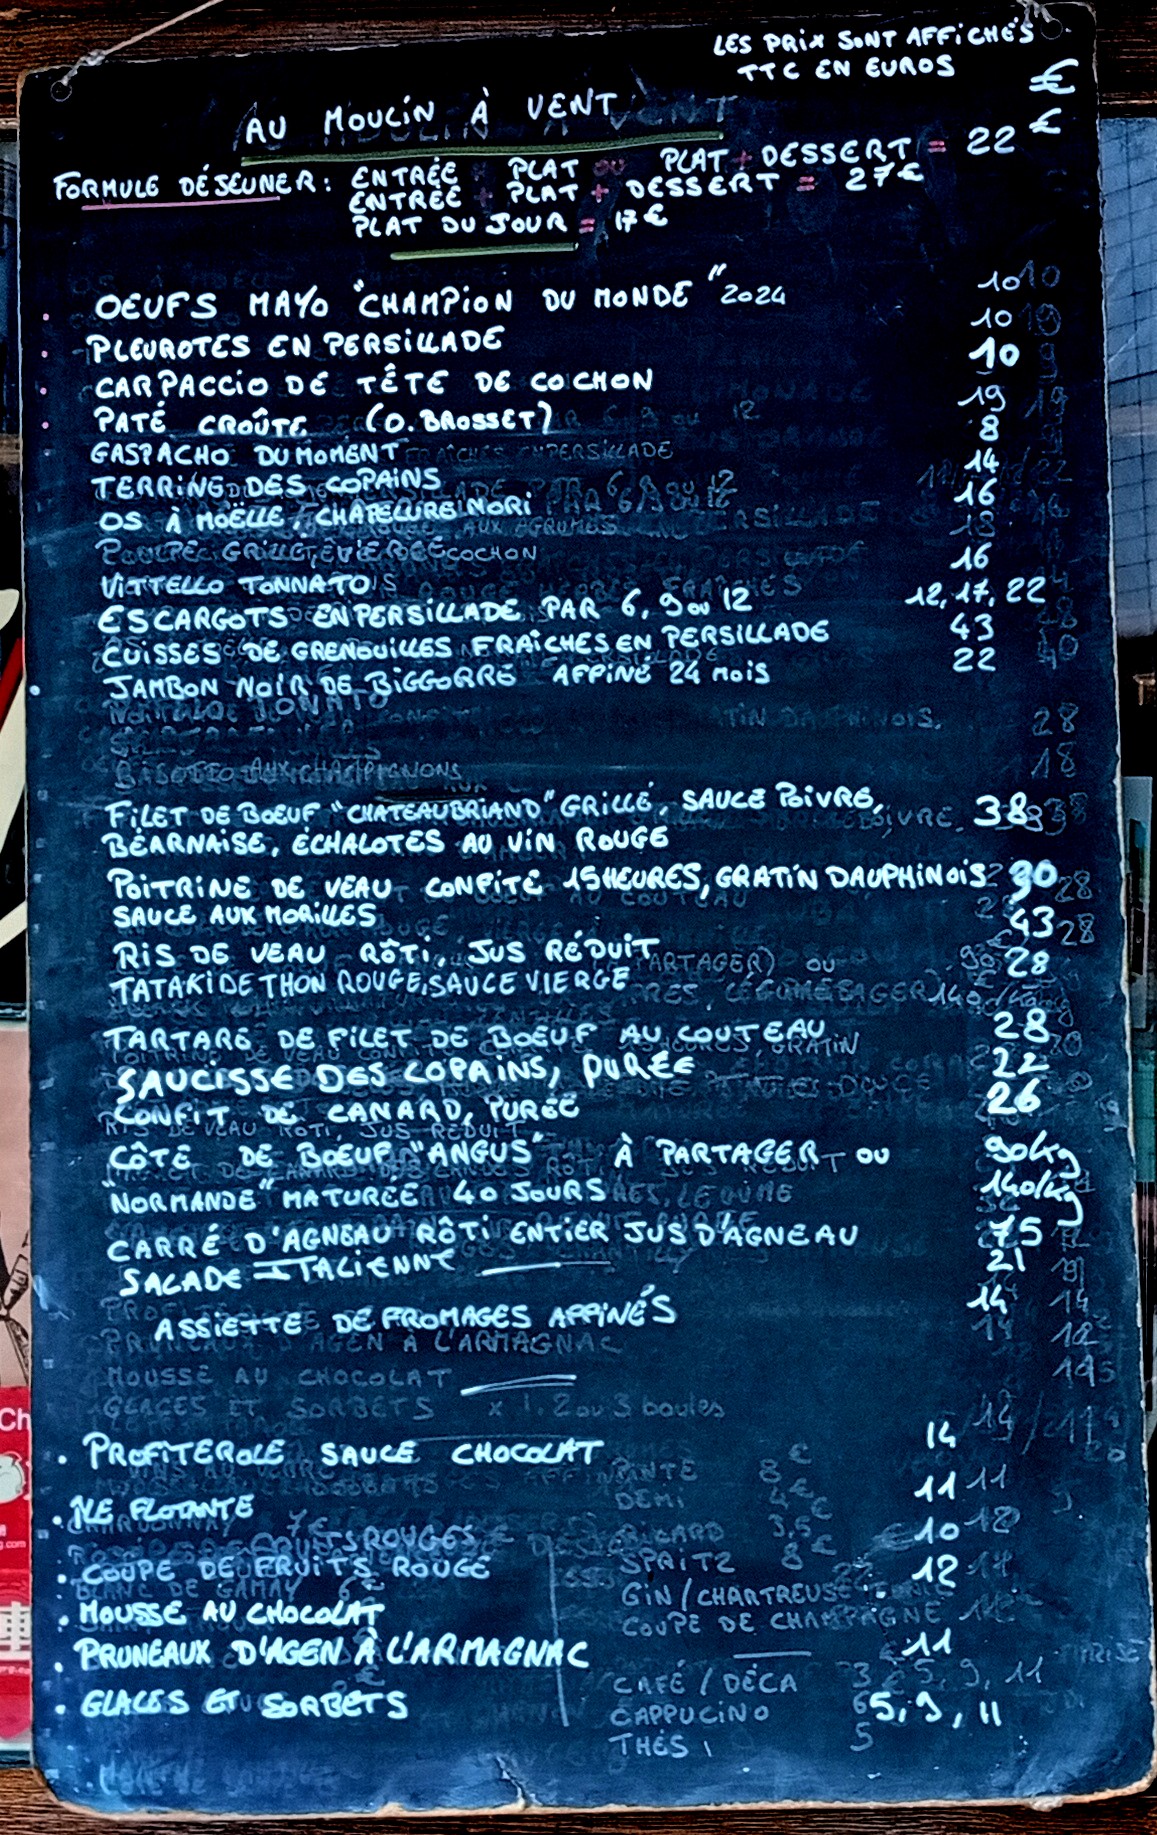 LES PRIX SONT AFFICHÉS
TTC EN EUROS
€
€
AU MOULIN À VENT
FORMULE DÉJEUNER : ENTRÉE + PLAT OU PLAT + DESSERT = 22
ENTRÉE + PLAT + DESSERT = 27€
PLAT DU JOUR = 17€
OEUFS MAYO "CHAMPION DU MONDE" 2024 10
PLEUROTES EN PERSILLADE 10
CARPACCIO DE TÊTE DE COCHON 10
PATÉ CROÛTE (O. BROSSET) 19
GASPACHO DU MOMENT 8
TERRINE DES COPAINS 14
OS À MOËLLE, CHAPELURE NORI 16
VITTELLO TONNATO 16
ESCARGOTS EN PERSILLADE PAR 6, 9 OU 12 12, 17, 22
CUISSES DE GRENOUILLES FRAÎCHES EN PERSILLADE 43
JAMBON NOIR DE BIGGORRE AFFINÉ 24 MOIS 22
FILET DE BOEUF "CHATEAUBRIAND" GRILLÉ, SAUCE POIVRE, 38
BÉARNAISE, ÉCHALOTES AU VIN ROUGE
POITRINE DE VEAU CONFITE 15 HEURES, GRATIN DAUPHINOIS 30
SAUCE AUX MORILLES
RIS DE VEAU RÔTI, JUS RÉDUIT 43
TATAKI DE THON ROUGE, SAUCE VIERGE 28
TARTARE DE FILET DE BOEUF AU COUTEAU 28
SAUCISSE DES COPAINS, PURÉE 22
CONFIT DE CANARD, PURÉE 26
CÔTE DE BOEUF "ANGUS" À PARTAGER OU 90/kg
"NORMANDE" MATURÉE 40 JOURS 140/kg
CARRÉ D'AGNEAU RÔTI ENTIER JUS D'AGNEAU 75
SALADE ITALIENNE 21
ASSIETTE DE FROMAGES AFFINÉS 14
MOUSSE AU CHOCOLAT
GLACES ET SORBETS x 1, 2 ou 3 boules
• PROFITEROLE SAUCE CHOCOLAT 14
• ÎLE FLOTANTE 11
• COUPE DE FRUITS ROUGE 10
• MOUSSE AU CHOCOLAT 12
• PRUNEAUX D'AGEN À L'ARMAGNAC 11
• GLACES ET SORBETS 5, 9, 11
PINTE 8€
DEMI 4€
RICARD 3,5€
SPRITZ 8€
GIN / CHARTREUSE
COUPE DE CHAMPAGNE
CAFÉ / DÉCA 3
CAPPUCINO 6
THÉS 5